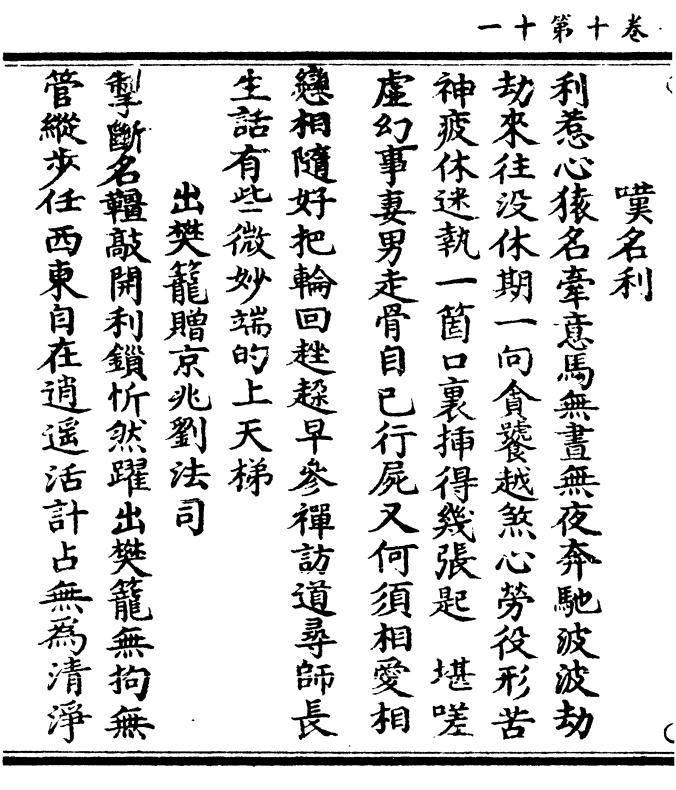 卷十第十一
嘆名利
利惹心猿名牽意馬無晝無夜奔馳波波劫
劫來往没休期一向貪饕越煞心勞役形苦
神疲休迷執一箇口裏揷得幾張匙　堪嗟
虛幻事妻男走骨自已行屍又何須相愛相
戀相隨好把輪回趖趓早參禪訪道尋師長
生話有些微妙端的上天梯
出樊籠贈京兆劉法司
掣斷名韁敲開利鎖忻然躍出樊籠無拘無
管縱步任西東自在逍遥活計占無為清淨